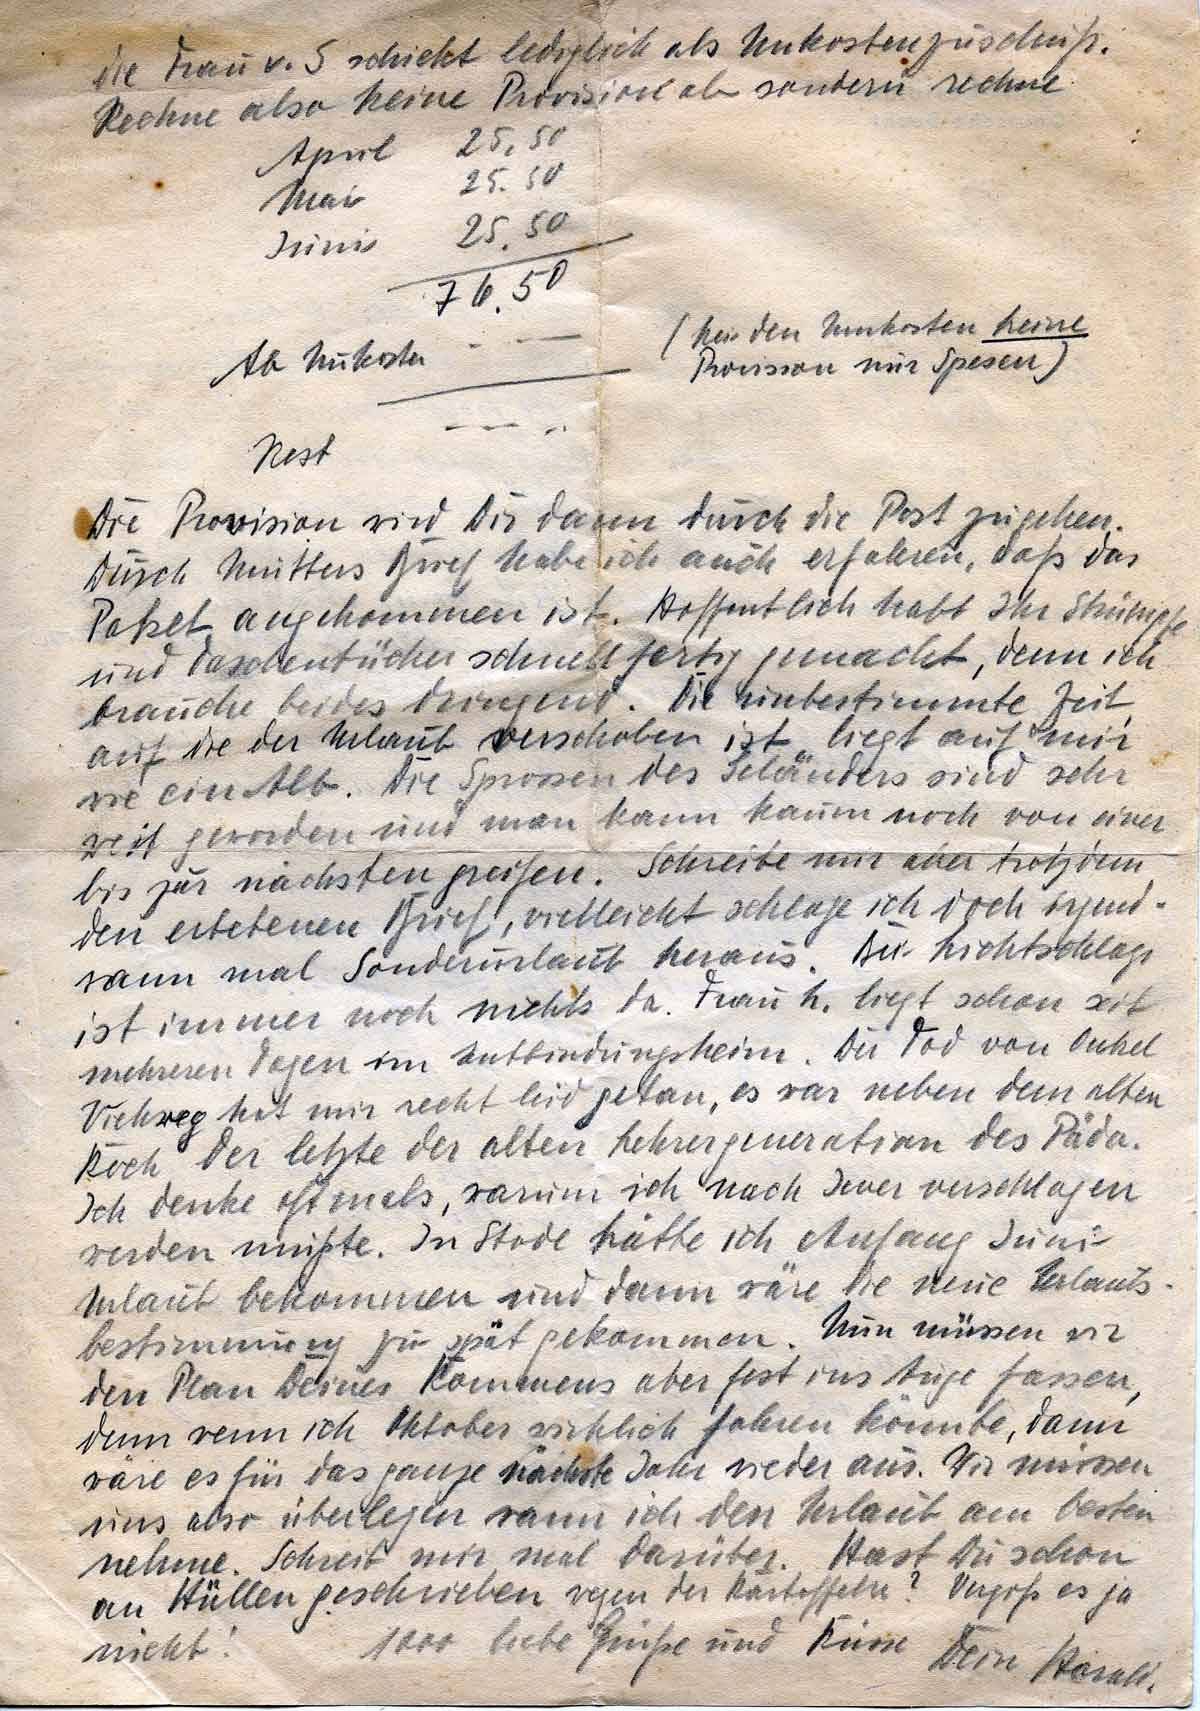 die Frau v. S schickt lediglich als Unkostenzuschuß.
Rechne also keine Provision ab sondern rechne
April 25,50
Mai 25.50
Juni 25,50
76.50
Ab Unkosten - — -
(bei den Unkosten keine
Provision nur Spesen)
Rest
Die Provision wird Dir dann durch die Post zugehen.
Durch Mutters Brief habe ich auch erfahren, daß das
Paket angekommen ist. Hoffentlich habt Ihr Strümpfe
und Taschentücher schnell fertig gemacht, denn ich
brauche beides dringend. Die unbestimmte Zeit,
auf die der Urlaub verschoben ist, liegt auf mir
wie ein Alb. Die Sprossen des Geländers sind sehr
weit geworden und man kann kaum noch von einer
bis zur nächsten greifen. Schreibe mir aber trotzdem
den erbetenen Brief, vielleicht schlage ich doch irgend-
wann mal Sonderurlaub heraus. Bei
ist immer noch nichts da. Frau L. liegt schon seit
mehreren Tagen im Entbindungsheim. Der Tod von Onkel
Viehweg hat mir recht leid getan, es war neben dem alten
Koch der letzte der alten Lehrergeneration des Päda.
Ich denke oftmals, warum ich nach Jever verschlagen
werden mußte. In Stade hätte ich Anfang Juni
Urlaub bekommen und dann wäre die neue Urlaubs-
bestimmung zu spät gekommen. Nun müssen wir
den Plan Deines Kommens aber fest ins Auge fassen,
denn wenn ich Oktober wirklich fahren könnte, dann
wäre es für das ganze nächste Jahr wieder aus. Wir müssen
uns also überlegen wann ich den Urlaub am besten
nehme. Schreib mir mal darüber. Hast Du schon
an Hüllen geschrieben wegen der Kartoffeln? Vergiß es ja
nicht! 1000 liebe Grüße und Küsse Dein Harald.